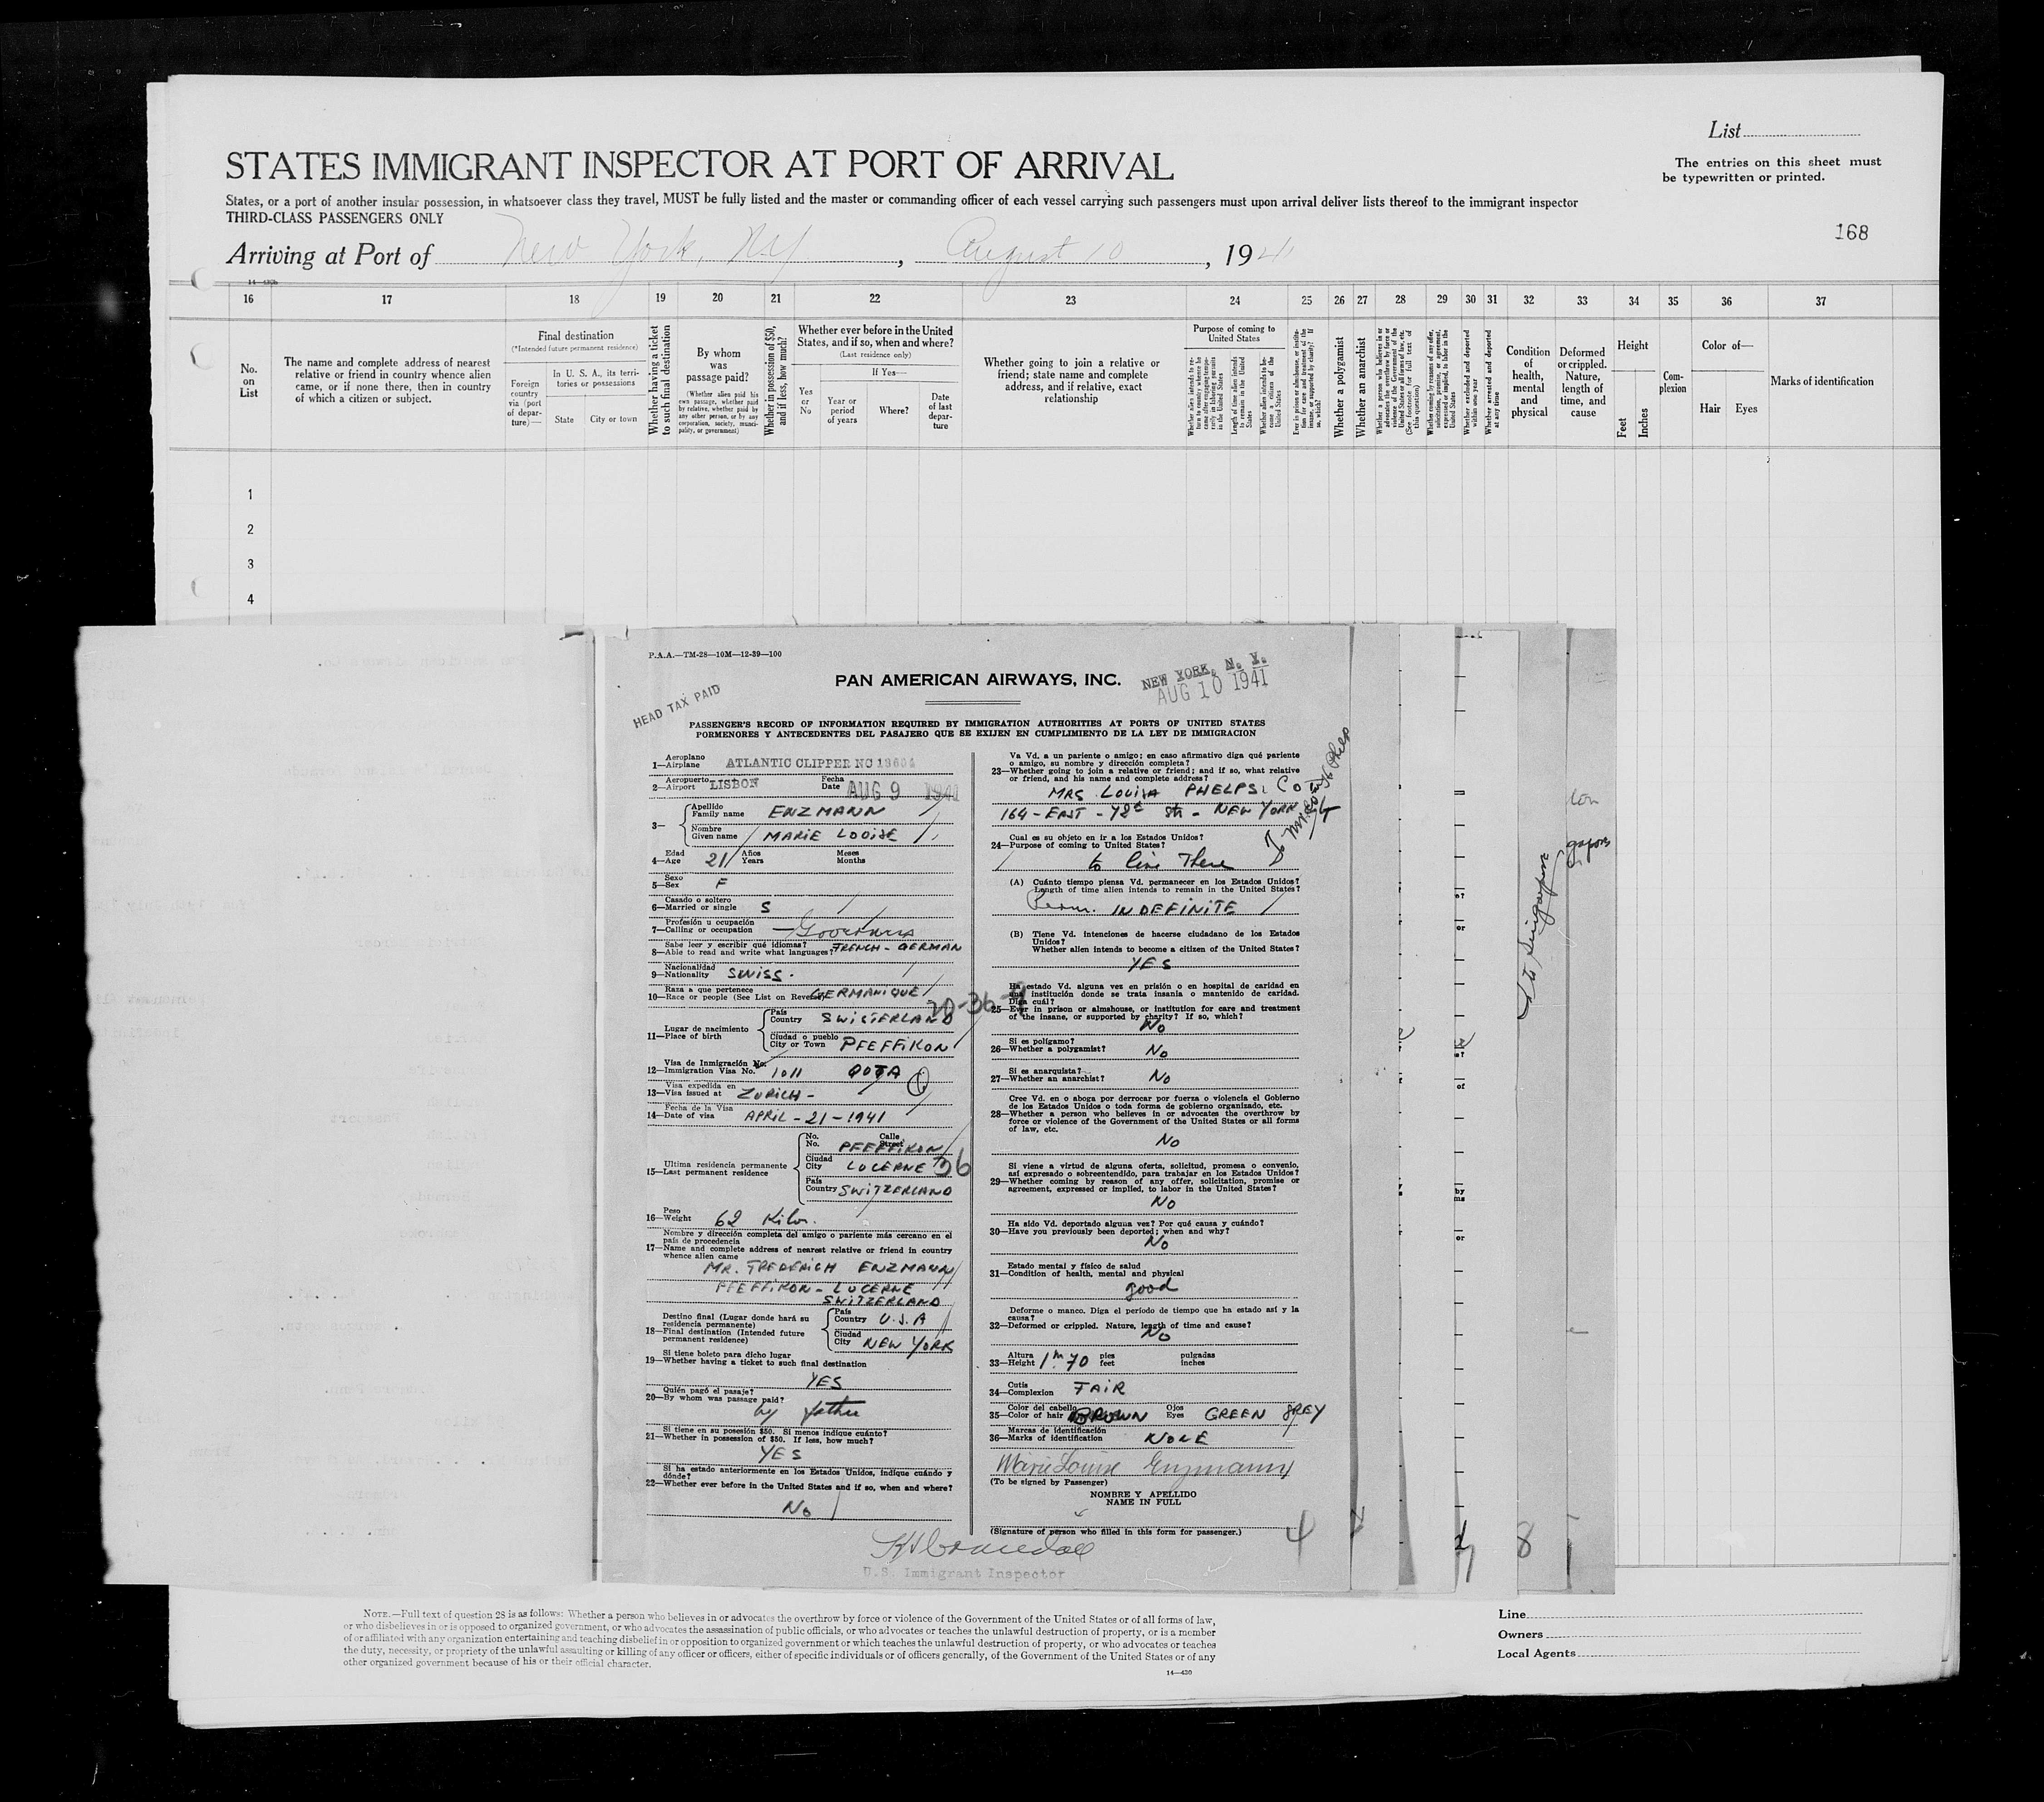 List
STATES IMMIGRANT INSPECTOR AT PORT OF ARRIVAL
The entries on this sheet must
be typewritten or printed.
States, or a port of another insular possession, in whatsoever class they travel, MUST be fully listed and the master or commanding officer of each vessel carrying such passengers must upon arrival deliver lists thereof to the immigrant inspector
THIRD-CLASS PASSENGERS ONLY
168
Arriving at Port of New York, NY, August 10, 1941
16 17 18 19 20 21 22 23 24 25 26 27 28 29 30 31 32 33 34 35 36 37
No. on List
The name and complete address of nearest relative or friend in country whence alien came, or if none there, then in country of which a citizen or subject.
Final destination
(*Intended future permanent residence)
Foreign country via (port of departure)—
In U. S. A., its territories or possessions
State
City or town
Whether having a ticket to such final destination
By whom was passage paid?
(Whether alien paid his own passage, whether paid by relative, whether paid by any other person, or by any corporation, society, municipality, or government)
Whether in possession of $50, and if less, how much?
Whether ever before in the United States, and if so, when and where?
(Last residence only)
Yes or No
If Yes—
Year or period of years
Where?
Date of last departure
Whether going to join a relative or friend; state name and complete address, and if relative, exact relationship
Purpose of coming to United States
Whether alien intends to return to country whence he came after engaging temporarily in laboring pursuits in the United States
Length of time alien intends to remain in the United States
Whether alien intends to become a citizen of the United States
Ever in prison or almshouse, or institution for care and treatment of the insane, or supported by charity? If so, which?
Whether a polygamist
Whether an anarchist
(See footnote for full text of this question)
Whether coming by reason of any offer, solicitation, promise, or agreement, expressed or implied, to labor in the United States
Whether excluded and deported within one year
Whether arrested and deported at any time
Condition of health, mental and physical
Deformed or crippled. Nature, length of time, and cause
Height
Feet
Inches
Complexion
Color of—
Hair
Eyes
Marks of identification
1
2
3
4
P.A.A.—TM-28—10M—12-39—100
HEAD TAX PAID
PAN AMERICAN AIRWAYS, INC.
NEW YORK, N. Y.
AUG 10 1941
PASSENGER'S RECORD OF INFORMATION REQUIRED BY IMMIGRATION AUTHORITIES AT PORTS OF UNITED STATES
PORMENORES Y ANTECEDENTES DEL PASAJERO QUE SE EXIJEN EN CUMPLIMIENTO DE LA LEY DE INMIGRACION
Aeroplano
1—Airplane ATLANTIC CLIPPER NC 18604
Aeropuerto Fecha
2—Airport LISBON Date AUG 9 1941
3—
Apellido
Family name ENZMANN
Nombre
Given name MARIE LOUISE
Edad Años Meses
4—Age 21 Years Months
Sexo
5—Sex F
Casado o soltero
6—Married or single S
Profesión u ocupación
7—Calling or occupation Governess
Sabe leer y escribir qué idiomas?
8—Able to read and write what languages? FRENCH - GERMAN
Nacionalidad
9—Nationality SWISS.
Raza a que pertenece
10—Race or people (See List on Reverse) GERMANIQUE
20-36-4
Lugar de nacimiento
11—Place of birth
País
Country SWISTERLAND
Ciudad o pueblo
City or Town PFEFFIKON
Visa de Inmigración No.
12—Immigration Visa No. 1011 QOTA
Visa expedida en
13—Visa issued at ZURICH -
Fecha de la Visa
14—Date of visa APRIL - 21 - 1941
Ultima residencia permanente
15—Last permanent residence
No. Calle
No. Street PFEFFIKON
Ciudad
City LUCERNE 36
País
Country SWITZERLAND
Peso
16—Weight 62 Kilos.
Nombre y dirección completa del amigo o pariente más cercano en el
país de procedencia
17—Name and complete address of nearest relative or friend in country
whence alien came
MR. FREDERICH ENZMANN
PFEFFIKON - LUCERNE
SWITZERLAND
Destino final (Lugar donde hará su
residencia permanente)
18—Final destination (Intended future
permanent residence)
País
Country U.S.A
Ciudad
City NEW YORK
Si tiene boleto para dicho lugar
19—Whether having a ticket to such final destination
YES
Quién pagó el pasaje?
20—By whom was passage paid?
by father
Si tiene en su posesión $50. Si menos indique cuánto?
21—Whether in possession of $50. If less, how much?
YES
Si ha estado anteriormente en los Estados Unidos, indique cuándo y
dónde?
22—Whether ever before in the United States and if so, when and where?
No
Va Vd. a un pariente o amigo; en caso afirmativo diga qué pariente
o amigo, su nombre y dirección completa?
23—Whether going to join a relative or friend; and if so, what relative
or friend, and his name and complete address?
MRS LOUISA PHELPS.
164 - EAST - 72d Str - NEW YORK
Cual es su objeto en ir a los Estados Unidos?
24—Purpose of coming to United States?
to live There
(A) Cuánto tiempo piensa Vd. permanecer en los Estados Unidos?
Length of time alien intends to remain in the United States?
Perm. INDEFINITE
(B) Tiene Vd. intenciones de hacerse ciudadano de los Estados
Unidos?
Whether alien intends to become a citizen of the United States?
YES
Ha estado Vd. alguna vez en prisión o en hospital de caridad en
una institución donde se trata insania o mantenido de caridad.
Diga cuál?
25—Ever in prison or almshouse, or institution for care and treatment
of the insane, or supported by charity? If so, which?
No
Si es polígamo?
26—Whether a polygamist? No
Si es anarquista?
27—Whether an anarchist? No
Cree Vd. en o aboga por derrocar por fuerza o violencia el Gobierno
de los Estados Unidos o toda forma de gobierno organizado, etc.
28—Whether a person who believes in or advocates the overthrow by
force or violence of the Government of the United States or all forms
of law, etc.
No
Si viene a virtud de alguna oferta, solicitud, promesa o convenio,
así expresado o sobreentendido, para trabajar en los Estados Unidos?
29—Whether coming by reason of any offer, solicitation, promise or
agreement, expressed or implied, to labor in the United States?
No
Ha sido Vd. deportado alguna vez? Por qué causa y cuándo?
30—Have you previously been deported; when and why?
No
Estado mental y físico de salud
31—Condition of health, mental and physical
good
Deforme o manco. Diga el período de tiempo que ha estado así y la
causa?
32—Deformed or crippled. Nature, length of time and cause?
No
Altura pies pulgadas
33—Height 1m 70 feet inches
Cutis
34—Complexion FAIR
Color del cabello Ojos
35—Color of hair BROWN Eyes GREEN GREY
Marcas de identificación
36—Marks of identification NONE
Marie Louise Enzmann
(To be signed by Passenger)
NOMBRE Y APELLIDO
NAME IN FULL
(Signature of person who filled in this form for passenger.)
U.S. Immigrant Inspector
4
8
to Singapore
NOTE.—Full text of question 28 is as follows: Whether a person who believes in or advocates the overthrow by force or violence of the Government of the United States or of all forms of law,
or who disbelieves in or is opposed to organized government, or who advocates the assassination of public officials, or who advocates or teaches the unlawful destruction of property, or is a member
of or affiliated with any organization entertaining and teaching disbelief in or opposition to organized government or which teaches the unlawful destruction of property, or who advocates or teaches
the duty, necessity, or propriety of the unlawful assaulting or killing of any officer or officers, either of specific individuals or of officers generally, of the Government of the United States or of any
other organized government because of his or their official character.
14—430
Line
Owners
Local Agents